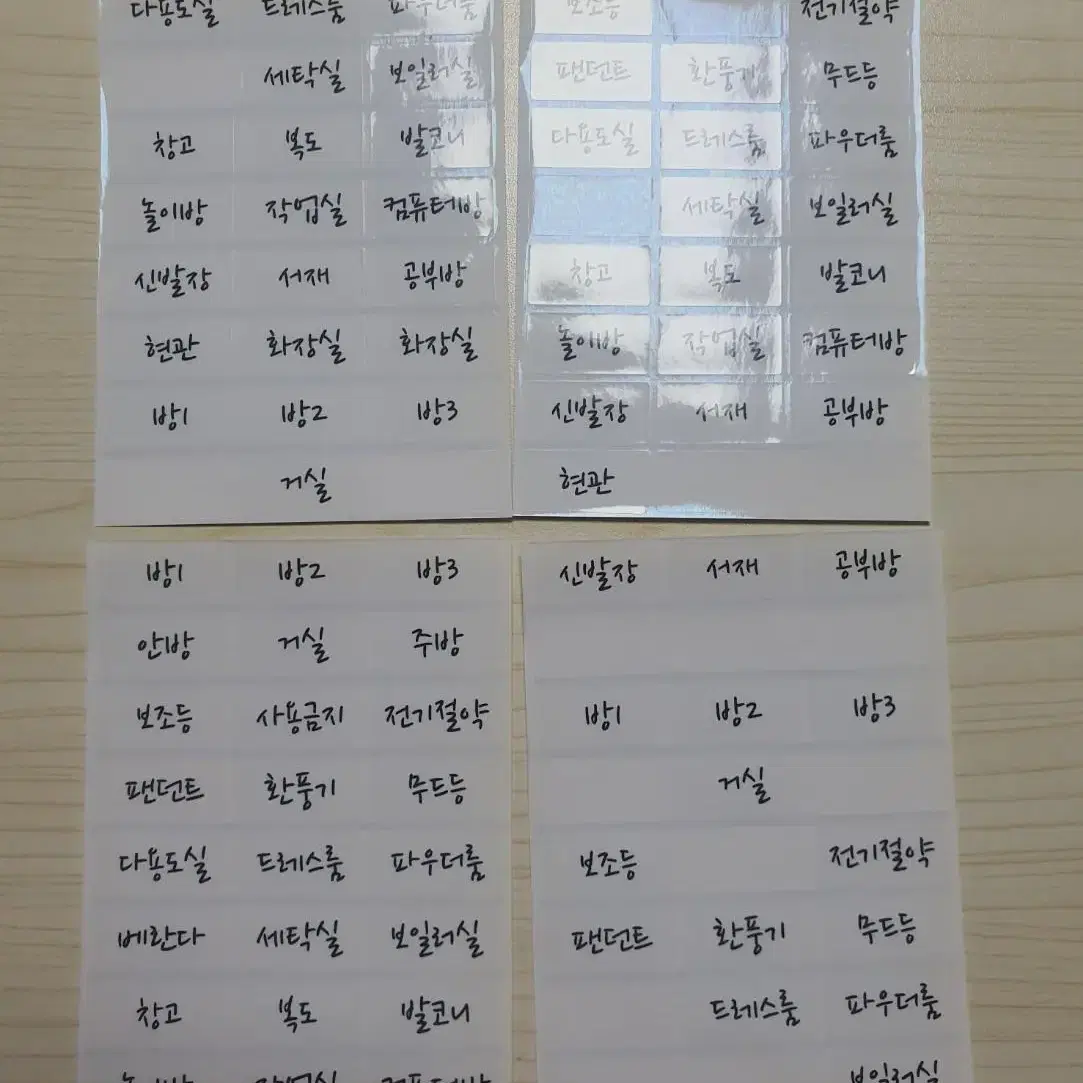 다용도실 드레스룸 파우더룸
세탁실 보일러실
창고 복도 발코니
놀이방 작업실 컴퓨터방
신발장 서재 공부방
현관 화장실 화장실
방1 방2 방3
거실
보조등 전기절약
팬던트 환풍기 무드등
다용도실 드레스룸 파우더룸
세탁실 보일러실
창고 복도 발코니
놀이방 작업실 컴퓨터방
신발장 서재 공부방
현관
방1 방2 방3
안방 거실 주방
보조등 사용금지 전기절약
팬던트 환풍기 무드등
다용도실 드레스룸 파우더룸
베란다 세탁실 보일러실
창고 복도 발코니
놀이방 작업실 컴퓨터방
신발장 서재 공부방
방1 방2 방3
거실
보조등 전기절약
팬던트 환풍기 무드등
드레스룸 파우더룸
보일러실